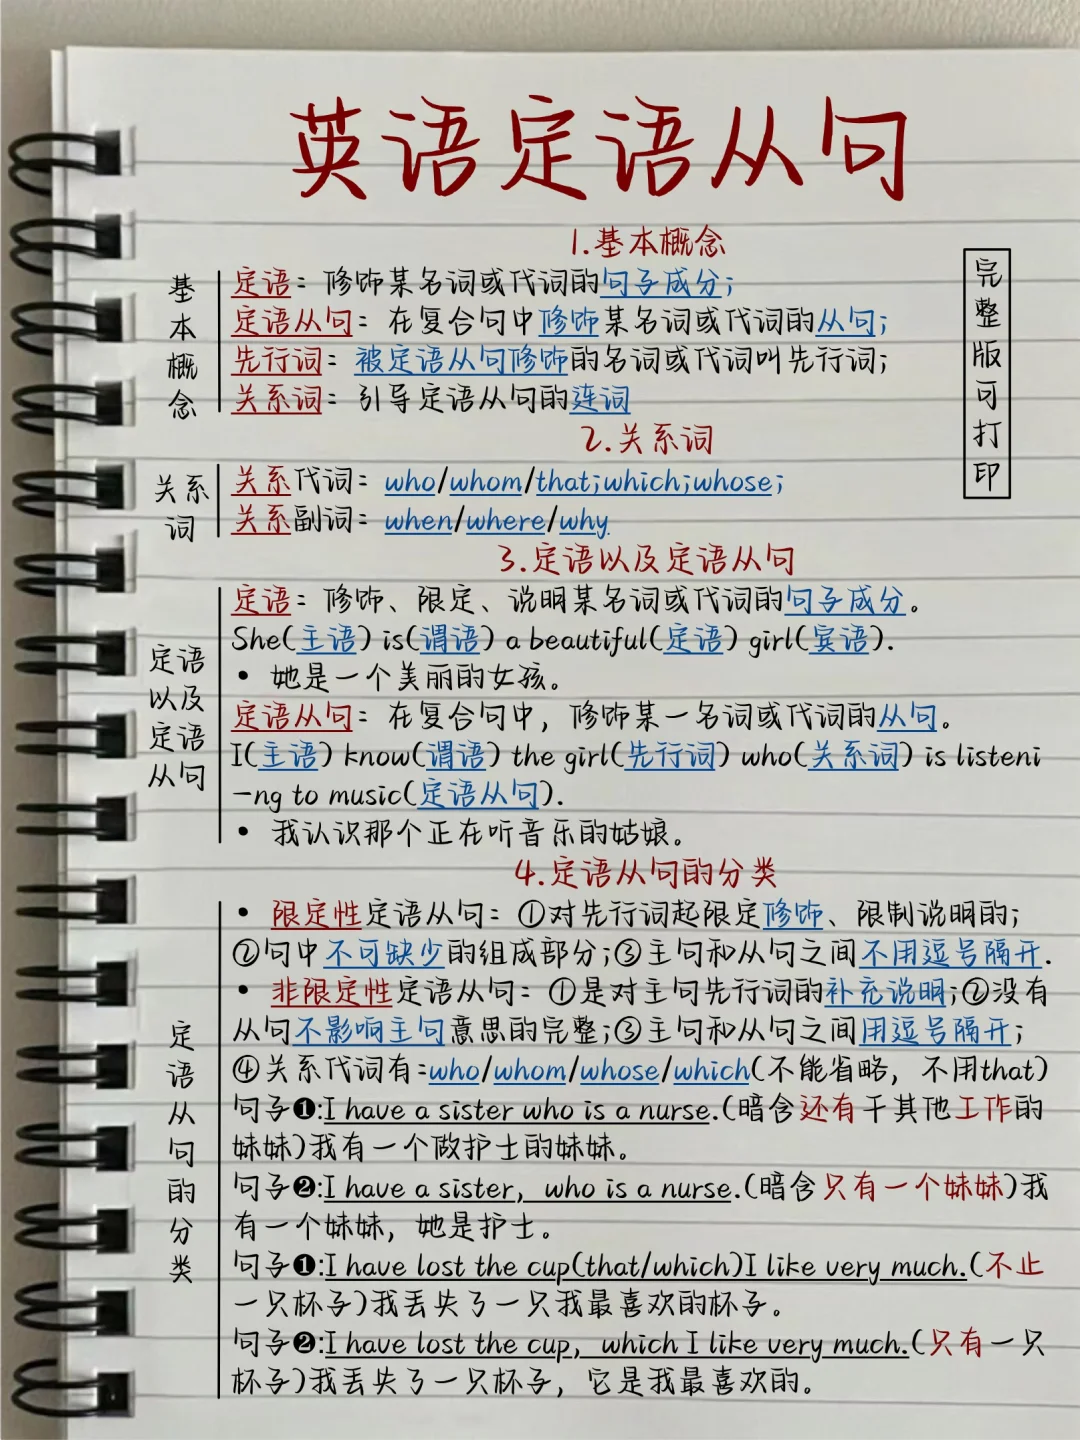 英语定语从句
1.基本概念
完整版可打印
基本概念
定语：修饰某名词或代词的句子成分；
定语从句：在复合句中修饰某名词或代词的从句；
先行词：被定语从句修饰的名词或代词叫先行词；
关系词：引导定语从句的连词
2.关系词
关系词
关系代词：who/whom/that;which;whose;
关系副词：when/where/why
3.定语以及定语从句
定语以及定语从句
定语：修饰、限定、说明某名词或代词的句子成分。
She(主语) is(谓语) a beautiful(定语) girl(宾语).
• 她是一个美丽的女孩。
定语从句：在复合句中，修饰某一名词或代词的从句。
I(主语) know(谓语) the girl(先行词) who(关系词) is listeni
-ng to music(定语从句).
• 我认识那个正在听音乐的姑娘。
4.定语从句的分类
定语从句的分类
• 限定性定语从句：①对先行词起限定修饰、限制说明的；
②句中不可缺少的组成部分；③主句和从句之间不用逗号隔开.
• 非限定性定语从句：①是对主句先行词的补充说明；②没有
从句不影响主句意思的完整；③主句和从句之间用逗号隔开；
④关系代词有:who/whom/whose/which(不能省略，不用that)
句子❶:I have a sister who is a nurse.(暗含还有干其他工作的
妹妹)我有一个做护士的妹妹。
句子❷:I have a sister，who is a nurse.(暗含只有一个妹妹)我
有一个妹妹，她是护士。
句子❶:I have lost the cup(that/which)I like very much.(不止
一只杯子)我丢失了一只我最喜欢的杯子。
句子❷:I have lost the cup，which I like very much.(只有一只
杯子)我丢失了一只杯子，它是我最喜欢的。